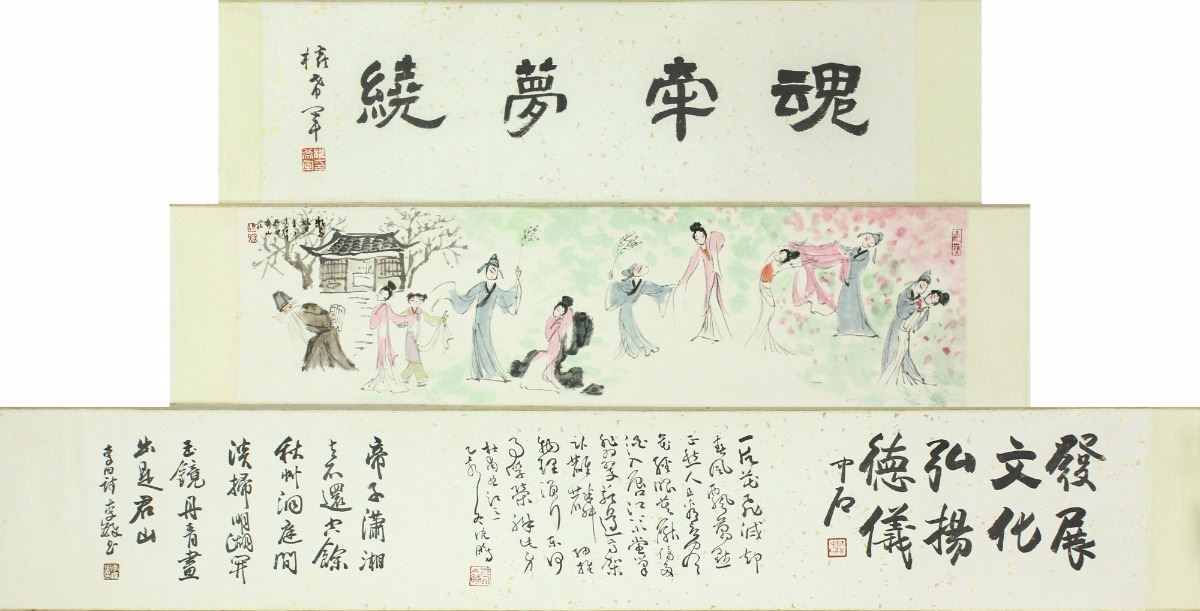 魂牽夢繞
權希军
發展
文化
弘揚
德儀
中石
一片花飛減却
春風飄萬點
正愁人且看欲盡
花經眼莫厭傷多
酒入唇江上小堂巢
翡翠苑邊高塚
卧麒麟細推
物理須行樂何
用浮榮絆此身
杜甫曲江
帝子瀟湘
去不還空餘
秋草洞庭間
淡掃明湖開
玉鏡丹青畫
出是君山
李白詩 書